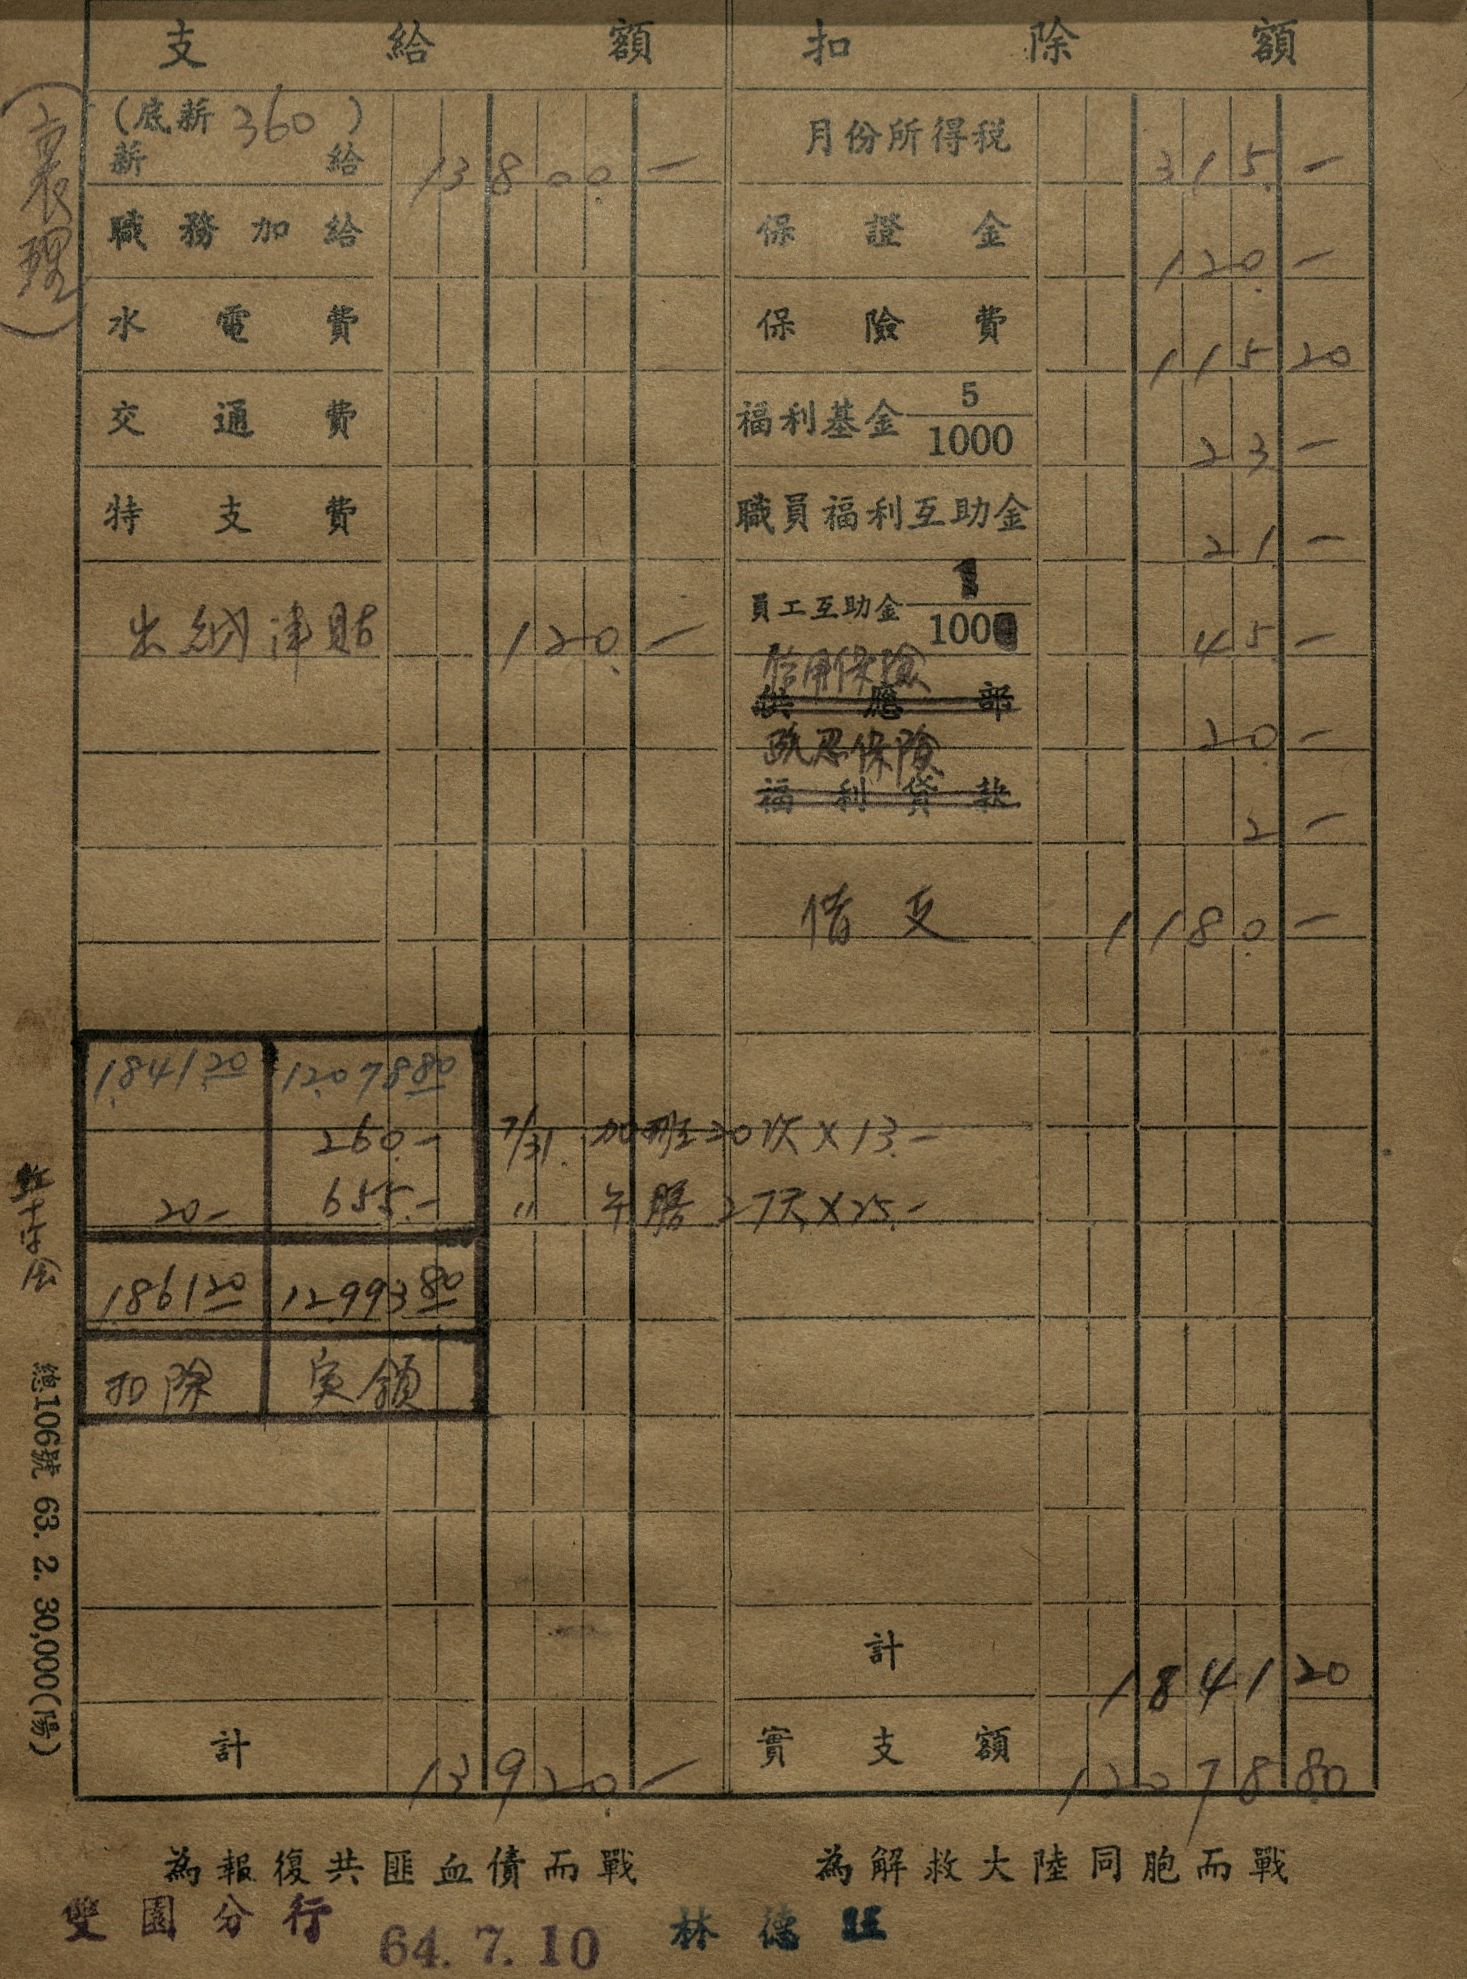 支給額 扣除額
(襄理)
(底薪 360 )
薪給 13800.-
月份所得稅 315.-
職務加給
保證金 120.-
水電費
保險費 115 20
交通費
福利基金 5/1000 23.-
特支費
職員福利互助金 21.-
出納津貼 120.-
員工互助金 1/100 45.-
信用保險
供應部 20.-
疏忽保險
福利貸款 2.-
借支 1180.-
1,841.20 12,078.80
260.- 7/31. 加班20次×13.-
20.- 655.- 〃 午膳27天×25.-
1,861.20 12,993.80
扣除 実領
紅十字会
總106號 63. 2. 30,000(陽)
計 1841 20
計 13920.-
實支額 12078 80
為報復共匪血債而戰 為解救大陸同胞而戰
雙園分行 64. 7. 10 林德旺